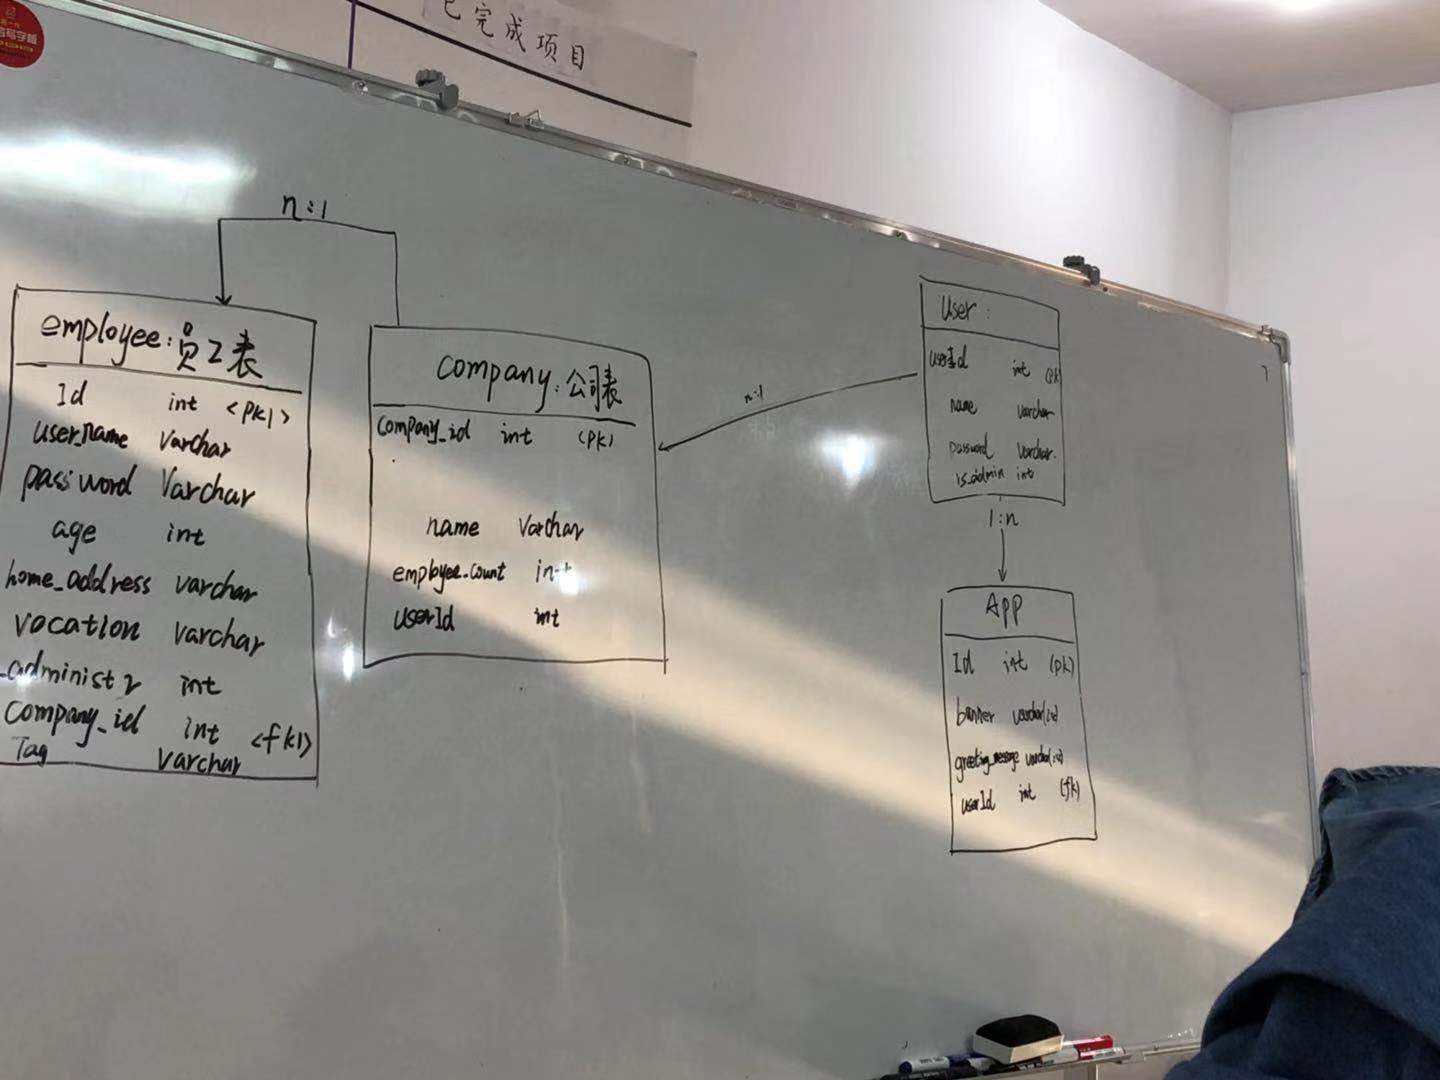 已完成项目
n:1
employee:员工表
Id int <pk1>
user_name varchar
password varchar
age int
home_address varchar
vocation varchar
company_id int <fk1>
Tag varchar
company:公司表
company_id int (pk)
name varchar
employee_count int
userId int
n:1
User:
userId int (pk
name varchar
password varchar.
is_admin int
1:n
App
Id int (pk)
banner
greeting_message
userId int (fk)